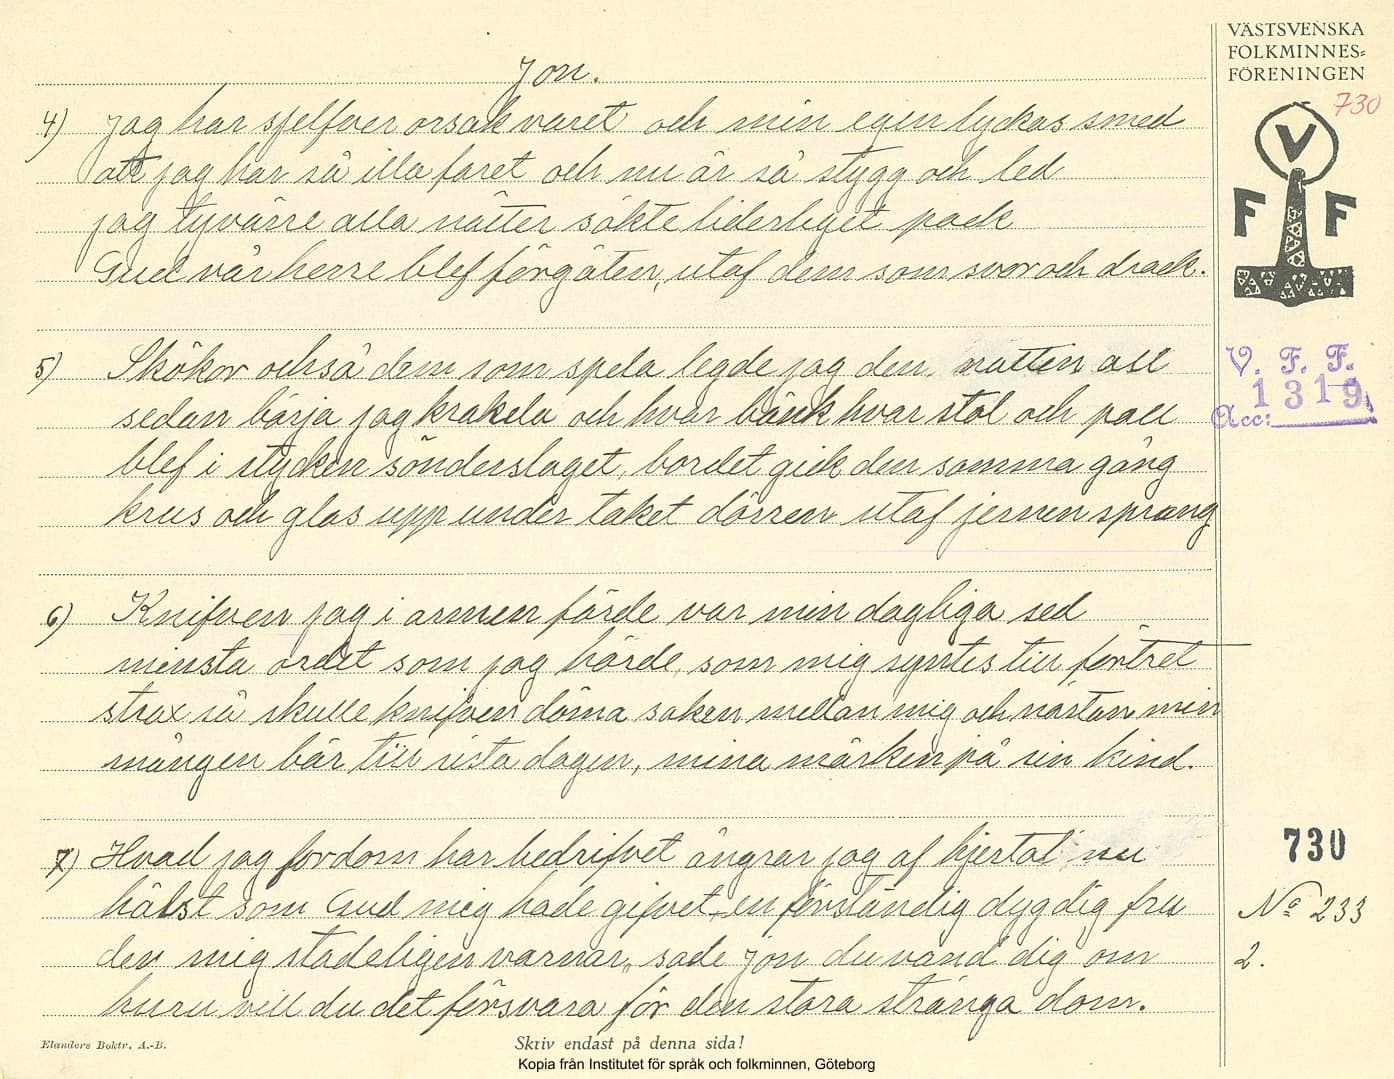 Jon.
4) jag har sjelfver orsak varet och min egen lyckas smed
att jag har så illa faret och nu är så stygg och led
jag tyvärre alla nätter sökte liderliget pack
Gud vår herre blef förgäten, utaf dem som svor och drack.
5) Skökor också dem som spela legde jag den natten all
sedan börja jag krakela och hvar bänk hvar stol och pall
blef i stycken sönderslaget, bordet gick den samma gång
krus och glas upp under taket dörren utaf jernen sprang
6) Knifven jag i armen förde var min dagliga sed
minsta ordet som jag hörde, som mig syntes till förtret
strax så skulle knifven döma saken mellan mig och nästan min
mången bär till sista dagen, mina märken på sin kind.
7) Hvad jag fordom har bedrifvet ångrar jag af hjertat nu
hälst som Gud mig hade gifvet, en förståndig dygdig fru
den mig stadeligen varnar, sade Jon du vänd dig om
huru vill du det försvara för den stora stränga dom.
VÄSTSVENSKA
FOLKMINNES=
FÖRENINGEN
730
V
F F
V. F. F.
1319
Acc:
730
No 233
2.
Elanders Boktr. A.-B.
Skriv endast på denna sida!
Kopia från Institutet för språk och folkminnen, Göteborg